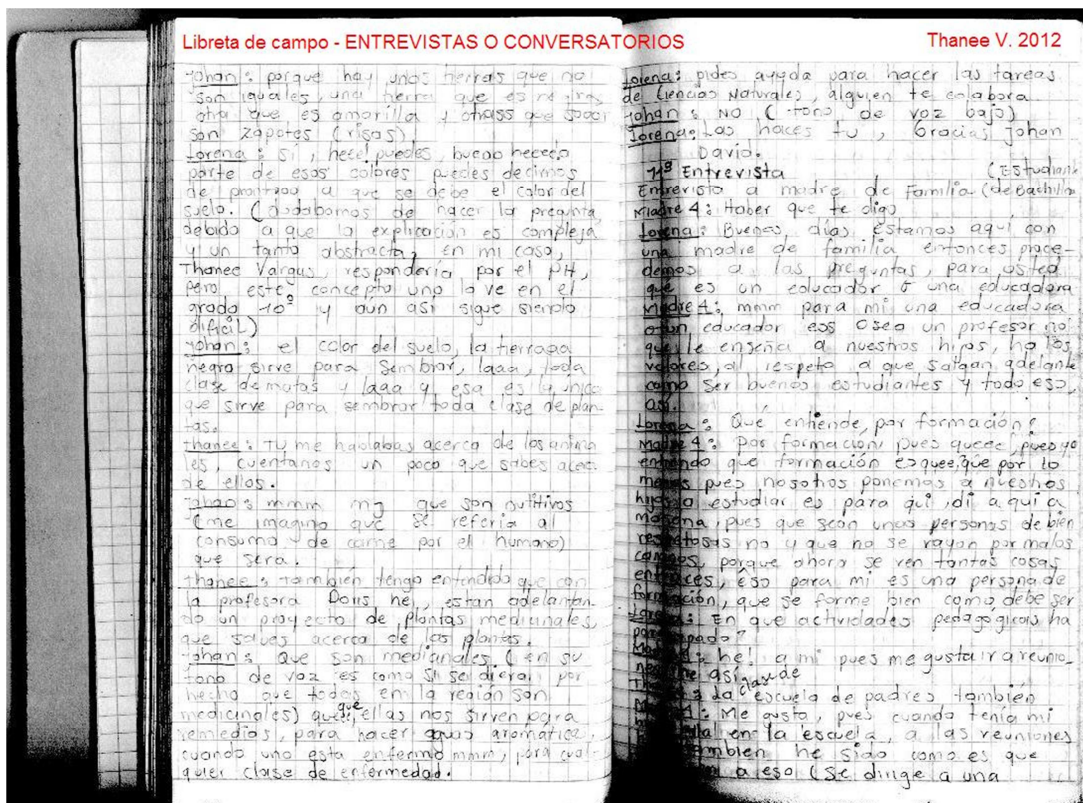 Libreta de campo - ENTREVISTAS O CONVERSATORIOS
Thanee V. 2012
Johan: porque hay unas tierras que no
son iguales, una tierra que es negra,
otra que es amarilla y otrass que
son zapotes (risas)
Lorena: Sí, puedes, bueno
parte de esos colores puedes decirnos
de a que se debe el color del
suelo. (dudabamos de hacer la pregunta
debido a que la explicación es compleja
y un tanto abstracta, en mi caso,
Thanee Vargas, respondería por el PH,
pero este concepto uno lo ve en el
grado 10º y aun así sigue siendo
difícil)
Johan: el color del suelo, la tierra
negra sirve para sembrar, laaa, toda
clase de matas y laaa y esa es la única
que sirve para sembrar toda clase de plan-
tas.
Thanee: Tu me hablabas acerca de los anima
les, cuentanos un poco que sabes acer
de ellos.
Johan: mmm mj que son nutitivos
(me imagino que se refería al
consumo de carne por el humano)
que sera.
Thanee: también tengo entendido que con
la profesora Doris he, estan adelantan-
do un proyecto de plantas medicinales,
que sabes acerca de las plantas.
Johan: Que son medicinales (en su
tono de voz es como si se diera por
hecho que todas en la región son
medicinales) que ellas nos sirven para
remedios, para hacer aguas aromatica,
cuando uno esta enfermo mmm, para cual
quier clase de enfermedad.
Lorena: pides ayuda para hacer las tareas
de Ciencias Naturales, alguien te colabora
Johan: NO (tono de voz bajo)
Lorena: Las haces tu, Gracias Johan
David.
11ª Entrevista (Estudiante
Entrevista a madre de Familia (de Bachiller
Madre 4: Haber que te digo
Lorena: Buenos días estamos aquí con
una madre de familia entonces proce-
demos a las preguntas, para usted
que es un educador o una educadora
Madre 4: mmm para mi una educadora
o un educador eos Osea un profesor no
que le enseña a nuestros hijos, ha los
valores, al respeto a que salgan adelante
como ser buenos estudiantes y todo eso,
así.
Lorena: Qué entiende por formación?
Madre 4: Por formación, pues queee, pues yo
entiendo que formación esquee, que por lo
menos pues nosotros ponemos a nuestros
hijos a estudiar es para qui, di aqui a
mañana, pues que sean unas personas de bien
respetosas no y que no se vayan por malos
caminos, porque ahora se ven tantas cosas
entonces, eso para mi es una persona de
formación, que se forme bien como debe ser
Lorena: En que actividades pedagogicas ha
participado?
he! a mi pues me gusta ir a reunio
así
la clase de escuela de padres también
Me gusta, pues cuando tenía mi
en la escuela, a las reuniones
también he sido como es que
a eso (Se dirige a una